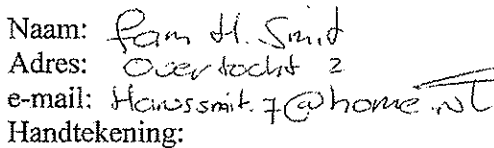 Naam: Fam H. Smit
Adres: Overtocht 2
e-mail: Hanssmit.7@home.nl
Handtekening: